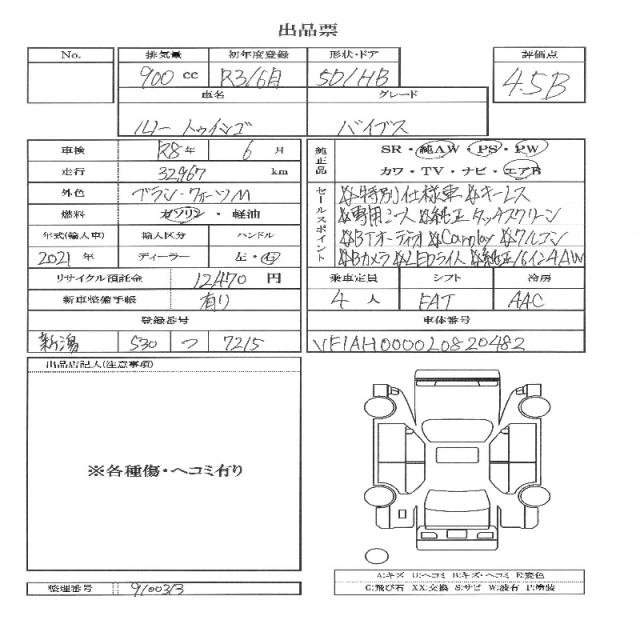 出品票
No. 排気量 初年度登録 形状・ドア 評価点
900 cc R3/6月 5D/HB 4.5B
車名 グレード
ルノー トゥインゴ バイブス
車検 R8年 6月
走行 32,967 km
外色 ブラン・クォーツM
燃料 ガソリン・軽油
年式(輸入車) 輸入区分 ハンドル
2021年 ディーラー 左・右
リサイクル預託金 12470円
新車整備手帳 有り
登録番号
新潟 530 つ 7215
純正品 SR・純AW・PS・PW
カワ・TV・ナビ・エアB
セールスポイント
☆特別仕様車☆キーレス
☆専用シート☆純正タッチスクリーン
☆BTオーディオ☆Carplay☆クルコン
☆Bカメラ☆LEDライト☆純正16インチAW
乗車定員 シフト 冷房
4人 FAT AAC
車体番号
VF1AH000020820482
出品店記入(注意事項)
※各種傷・ヘコミ有り
A:キズ U:ヘコミ B:キズ・ヘコミ E:変色
G:飛び石 XX:交換 S:サビ W:波有 P:塗装
整理番号 910033